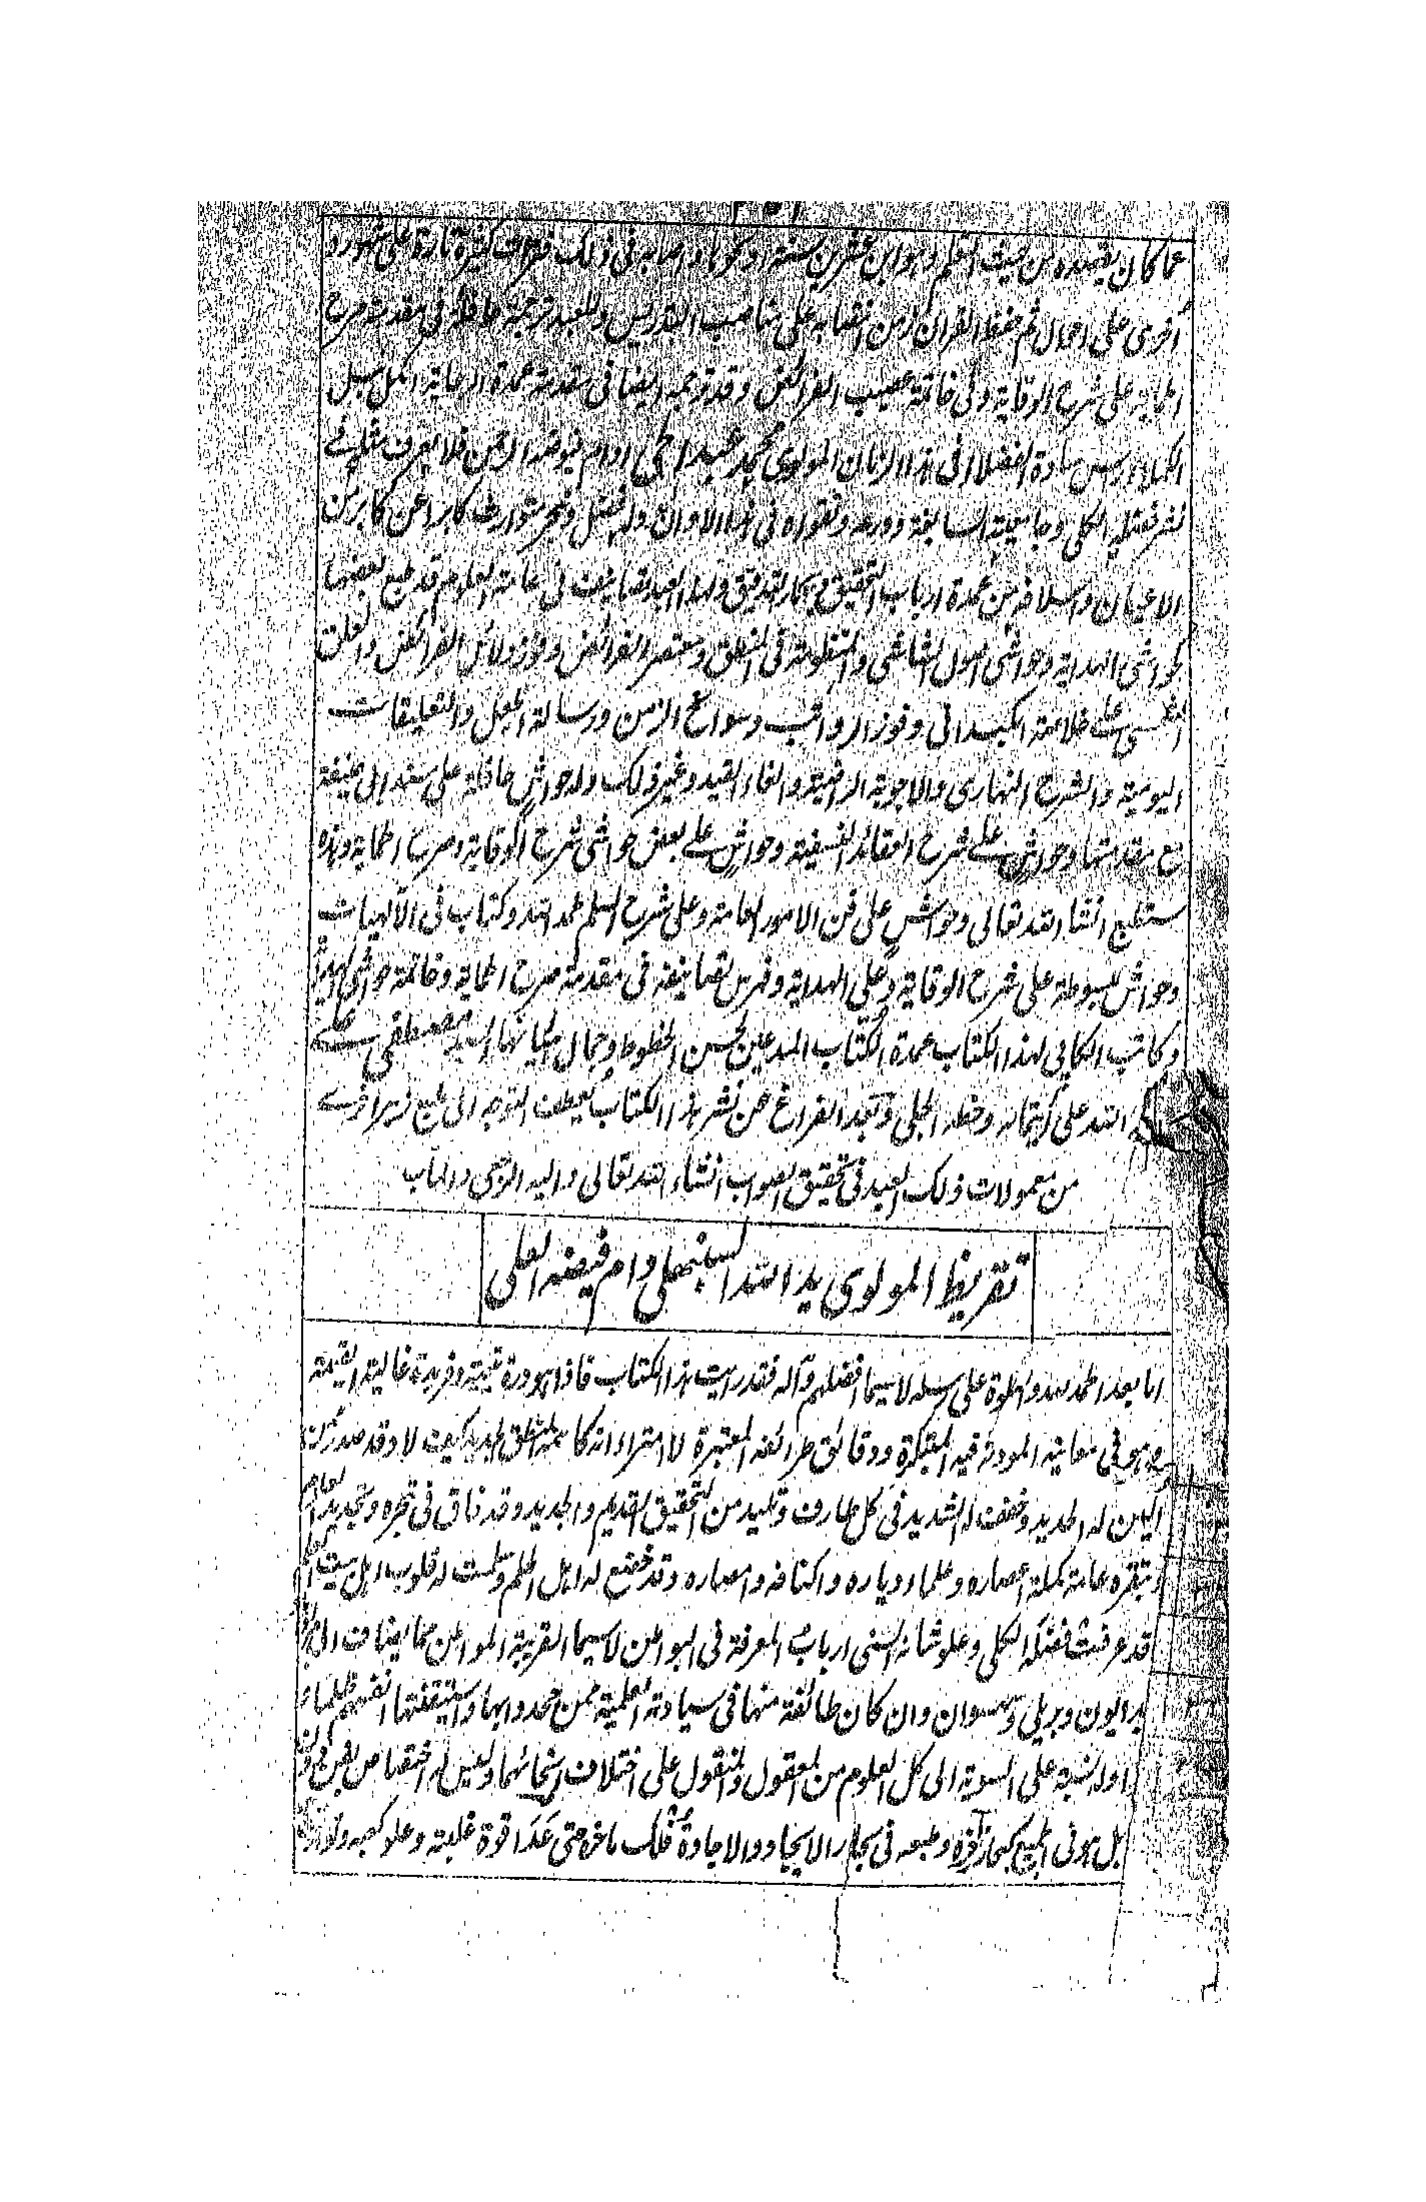 عما كان يقصده من بيت العلم وهو ابن عشرين سنة او نحوها واصابه في ذلك فترات كثيرة تارة على شهور و
أخرى على احوال ثم حفظ القران زمن انتصابه على مناصب التدريس وللعبد ترجمة حافلة في مقدمة صرح
الحماية على شرح الوقاية وفي خاتمة تعصيب الفرائض وقد ترجمه ايضا في مقدمة عمدة الرعاية اكمل
الكملاء رئيس سادة الفضلاء في هذا الزمان المولوي محمد عبد الحي ادام فيوضه الرحمن فلا يعرف مثله في
فضله الكلي وجامعيته السابغة وورعه وتقواه في هذا الاوان وله فضل وفخر متوارث كابرا عن كابر من
الاعيان واسلافه من عمدة ارباب التحقيق والتدقيق ولهذا العبد تصانيف في عامة العلوم قد طبع بعضها
كحواشي الهداية وحواشي اصول الشاشي والمنظومة في المنطق ومختصر الفرائض ودلائل الفرائض والتعليق
على خلاصة الكيداني وفوز المراتب وسوانح الزمن ورسالة المهمل والتعليقات
اليومية والشرح النهاري والاجوبة الرضية والغاء القيد وغير ذلك وله حواش حافلة على مسند ابي حنيفة
مع مقدمتها وحواش على شرح العقائد النسفية وحواش على بعض حواشي شرح الوقاية وصرح الحماية وهذه
ستطبع انشاء الله تعالى وحواش على فن الامور العامة وعلى شرح السلم لحمد الله وكتاب في الالهيات
وحواش مبسوطة على شرح الوقاية وعلى الهداية وفهرس تصانيفه في مقدمة صرح الحماية وخاتمة حواشي الهداية
وكاتب الكافي لهذا الكتاب عمدة الكتاب المبدعين لحسن الخطوط وجمال السيد مصطفى علي
الله على كتمانه وخطه الجلي وبعد الفراغ عن نشر هذا الكتاب يعطف التوجه الى طبع زبر اخرى
من معمولات ذلك العبد في تحقيق الصواب انشاء الله تعالى واليه الرجعى والماب
تقريظ المولوي يد الله السنبهلي دام فيضه العلي
اما بعد الحمد لله والصلوة على رسله لاسيما افضلهم وآله فقد رايت هذا الكتاب فاذا هو درة يتيمة وفريدة غالية القيمة
وهو في معانيه المودعة فيه المبتكرة ودقائق طرائفه المعتبرة لا امتراء انه كاسمه المنطق الجديد كيف لا وقد صدر ممن
الين له الحديد وخفت له الشديد في كل طارف وتليد من التحقيق القديم والجديد وقد فاق في تبحره وتجديده العلوم
وتبقره عامة كملة اعصاره وعلماء دياره واكنافه وامصاره وقد خضع له اهل العلم وسلمت له قلوب اهل بيت العلم
قد عرفت فضله الكلي وعلو شانه السني ارباب المعرفة في البواطن لاسيما القريبة المواطن مما يضاف الى
بدايون وبريلي وسهسوان وان كان طائفة منها في سيادته العلمية ممن جحدوا بها واستيقنتها انفسهم ظلما
وله نسبة على السوية الى كل العلوم من المعقول والمنقول على اختلاف انحائهما وليس له اختصاص بفن دون فن
بل هو في الجميع بحار زاخرة وطبعه في بحار الايجاد والاجادة فلك ماخرة حتى غدا قوة غلبته وعلو كعبه